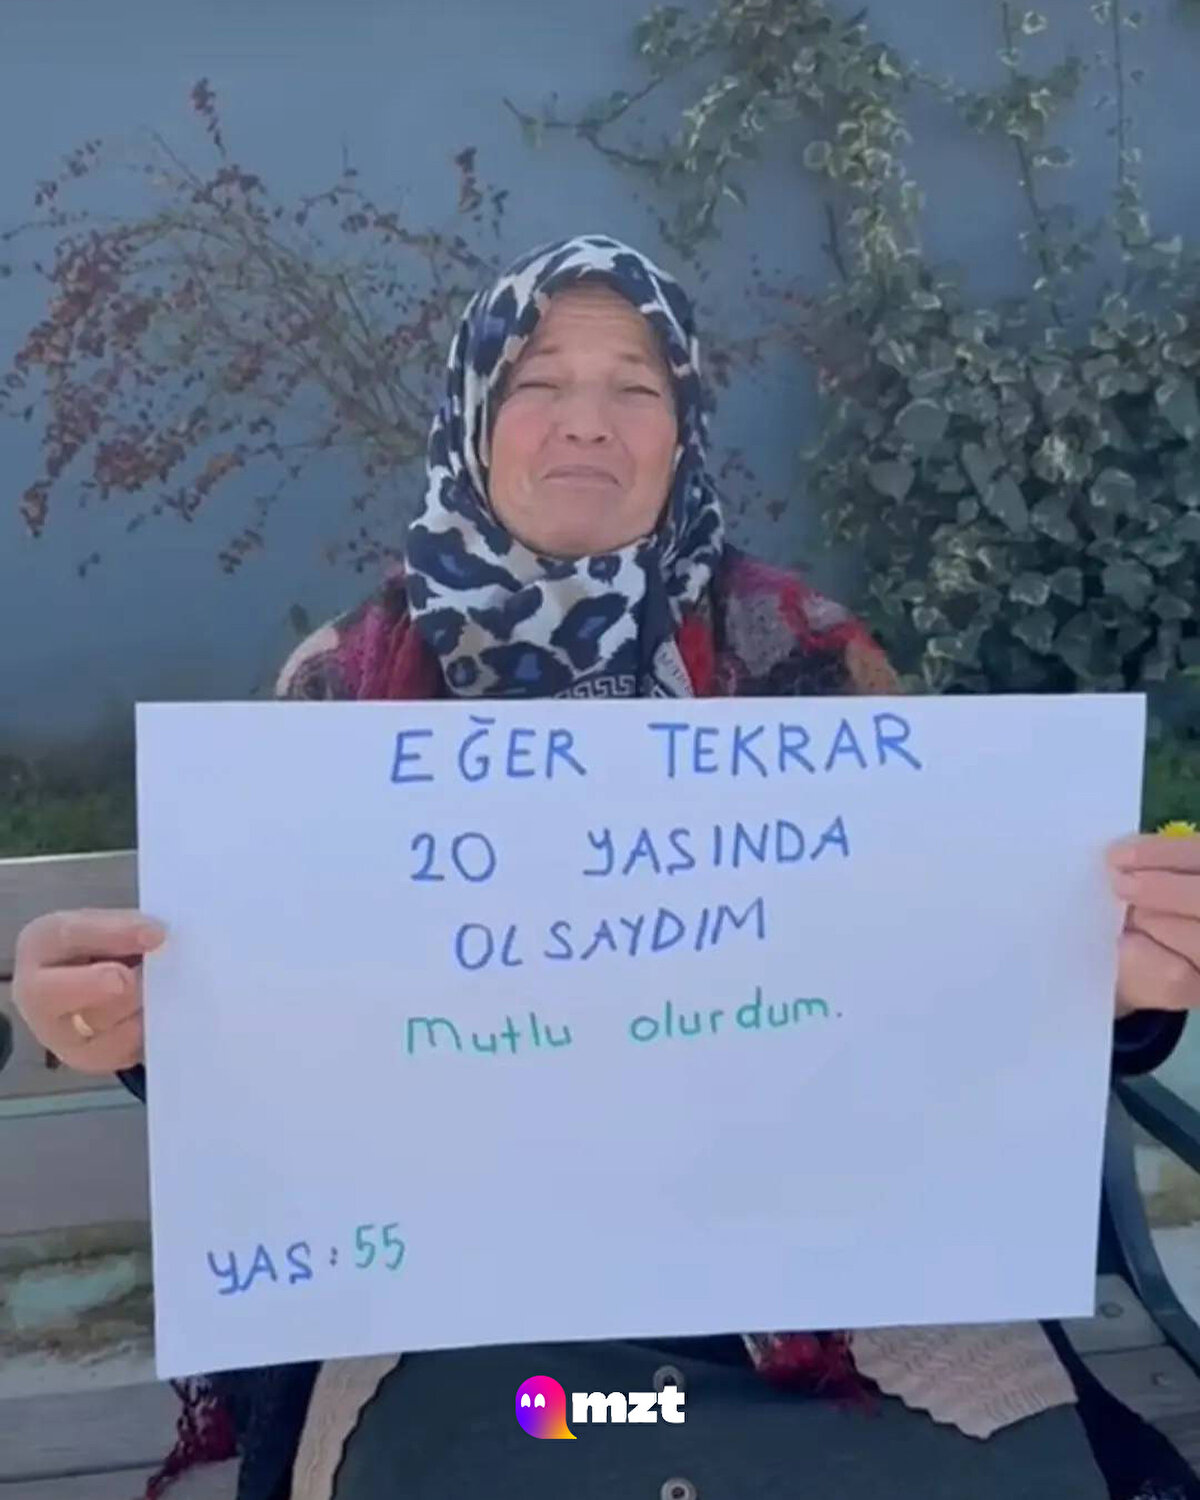 EĞER TEKRAR
20 YAŞINDA
OLSAYDIM
mutlu olurdum.
YAŞ: 55
mzt